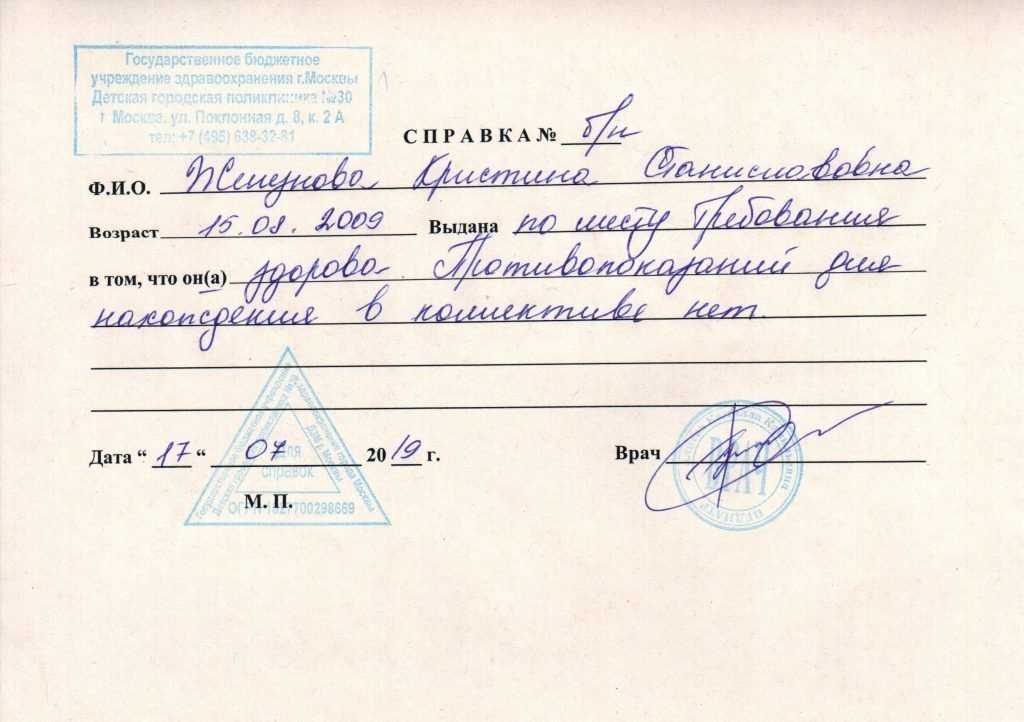 Государственное бюджетное
учреждение здравоохранения г.Москвы
Детская городская поликлиника №30
г. Москва, ул. Поклонная д. 8, к. 2 А
тел: +7 (495) 638-32-81
СПРАВКА № б/н
Ф.И.О. Кристина Станиславовна
Возраст 15.08.2009 Выдана по месту Требования
в том, что он(а) здорова. Противопоказаний для
нахождения в коллективе нет.
Дата “ 17 “ 07 20 19 г.
Врач
М. П.
для
справок
ОГРН 1027700298669
ВРАЧ
ПЕДИАТР